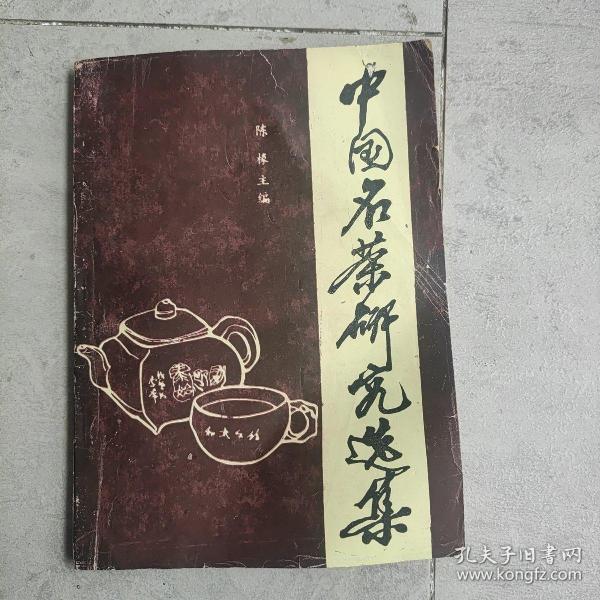 中国名茶研究选集
陈椽主编
孔夫子旧书网
www.kongfz.com